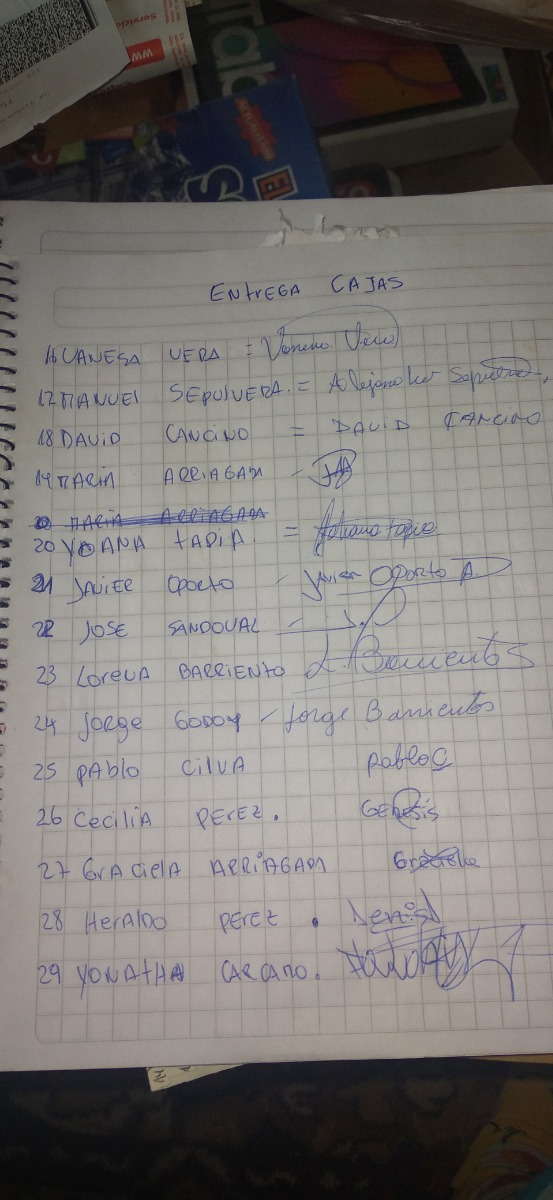 Servicio
WWW
Tab
EL
ENTrEGA CAJAS
16 VANESA VERA =
17 MANUEL SEPULVERA. = Alejandro
18 DAVID CANCINO = DAVID CANCINO
19 MARIA ARRIAGADA -
20 MARIA ARRIAGADA
20 YOANA TAPIA. =
21 JAVIER OPORTO - Javier OPorto A.
22 JOSE SANDOVAL
23 LoreNA BARRiENTO L. Barrientos
24 Jorge GODOY - Jorge Barrientos
25 PAblo CilVA Pablo C
26 CeciliA PEREZ. GENesis
27 GrACielA ARRiAGADA
28 HerAlDO PEREZ. Denis
29 YONATHA CARCAMO.